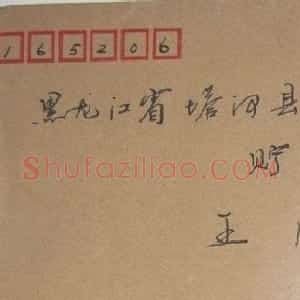 165206
黑龙江省塔河县
Shufaziliao.com
贮
王